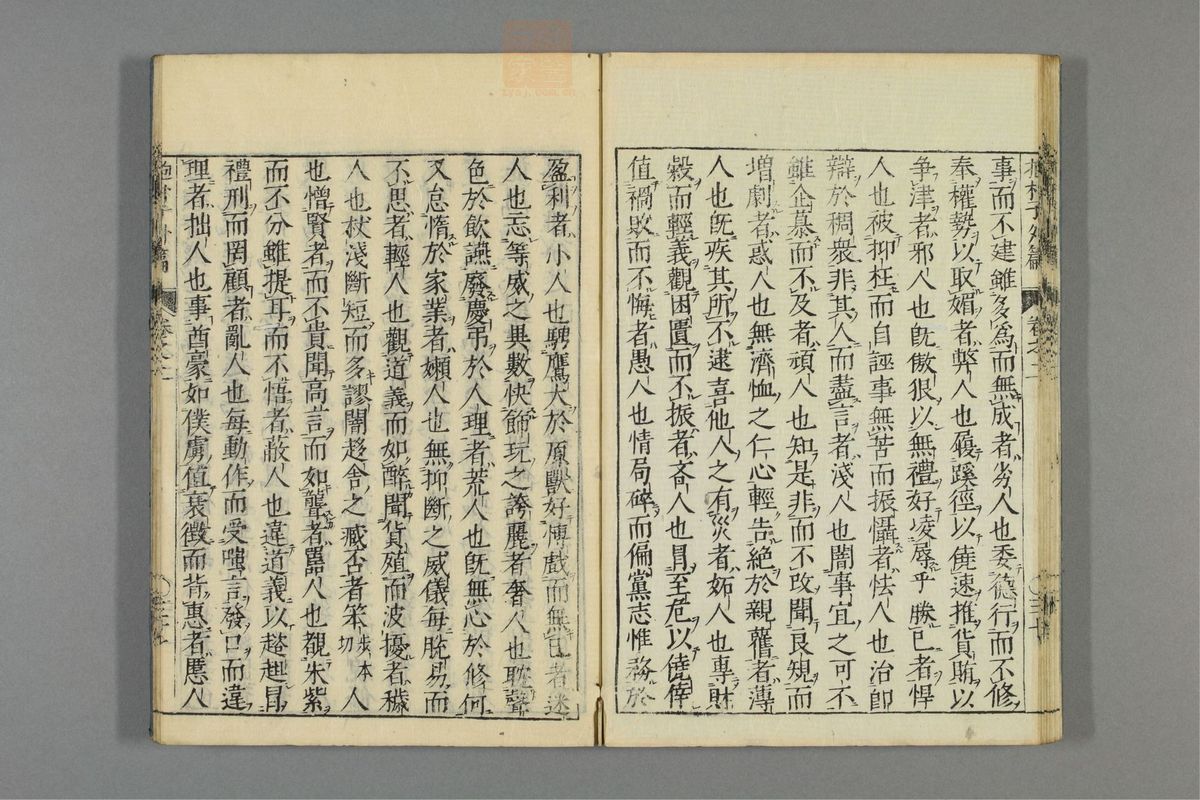 事而不建雖多為而無成者劣人也委德行而不修
奉權勢以取媚者弊人也履蹊徑以僥速推貨賄以
爭津者邪人也既傲狠以無禮好凌辱乎勝己者悍
人也被抑枉而自誣事無苦而振懾者怯人也治卽
辯於稠衆非其人而盡言者淺人也闇事宜之可不
雖企慕而不及者頑人也知是非而不改聞良規而
增劇者惑人也無濟恤之仁心輕告絕於親舊者薄
人也既疾其所不逮喜他人之有災者妬人也專財
穀而輕義觀困匱而不振者吝人也冐至危以僥倖
值禍敗而不悔者愚人也情局碎而偏黨志惟務於
盈利者小人也騁鷹犬於原獸好博戲而無已者迷
人也忘等威之異數快飾玩之誇麗者奢人也耽聲
色於飲讌廢慶弔於人理者荒人也既無心於修何
又怠惰於家業者嬾人也無抑斷之威儀每脫易而
不思者輕人也觀道義而如醉聞貨殖而波擾者穢
人也杖淺斷短而多謬闇趍舍之臧否者笨人
也憎賢者而不貴聞高言而如聾者嚚人也覩朱紫
而不分雖提耳而不悟者蔽人也違道義以趦趄冒
禮刑而罔顧者亂人也每動作而受嗤言發口而違
理者拙人也事酋豪如僕虜值衰微而背惠者慝人
抱朴子外篇
卷之二